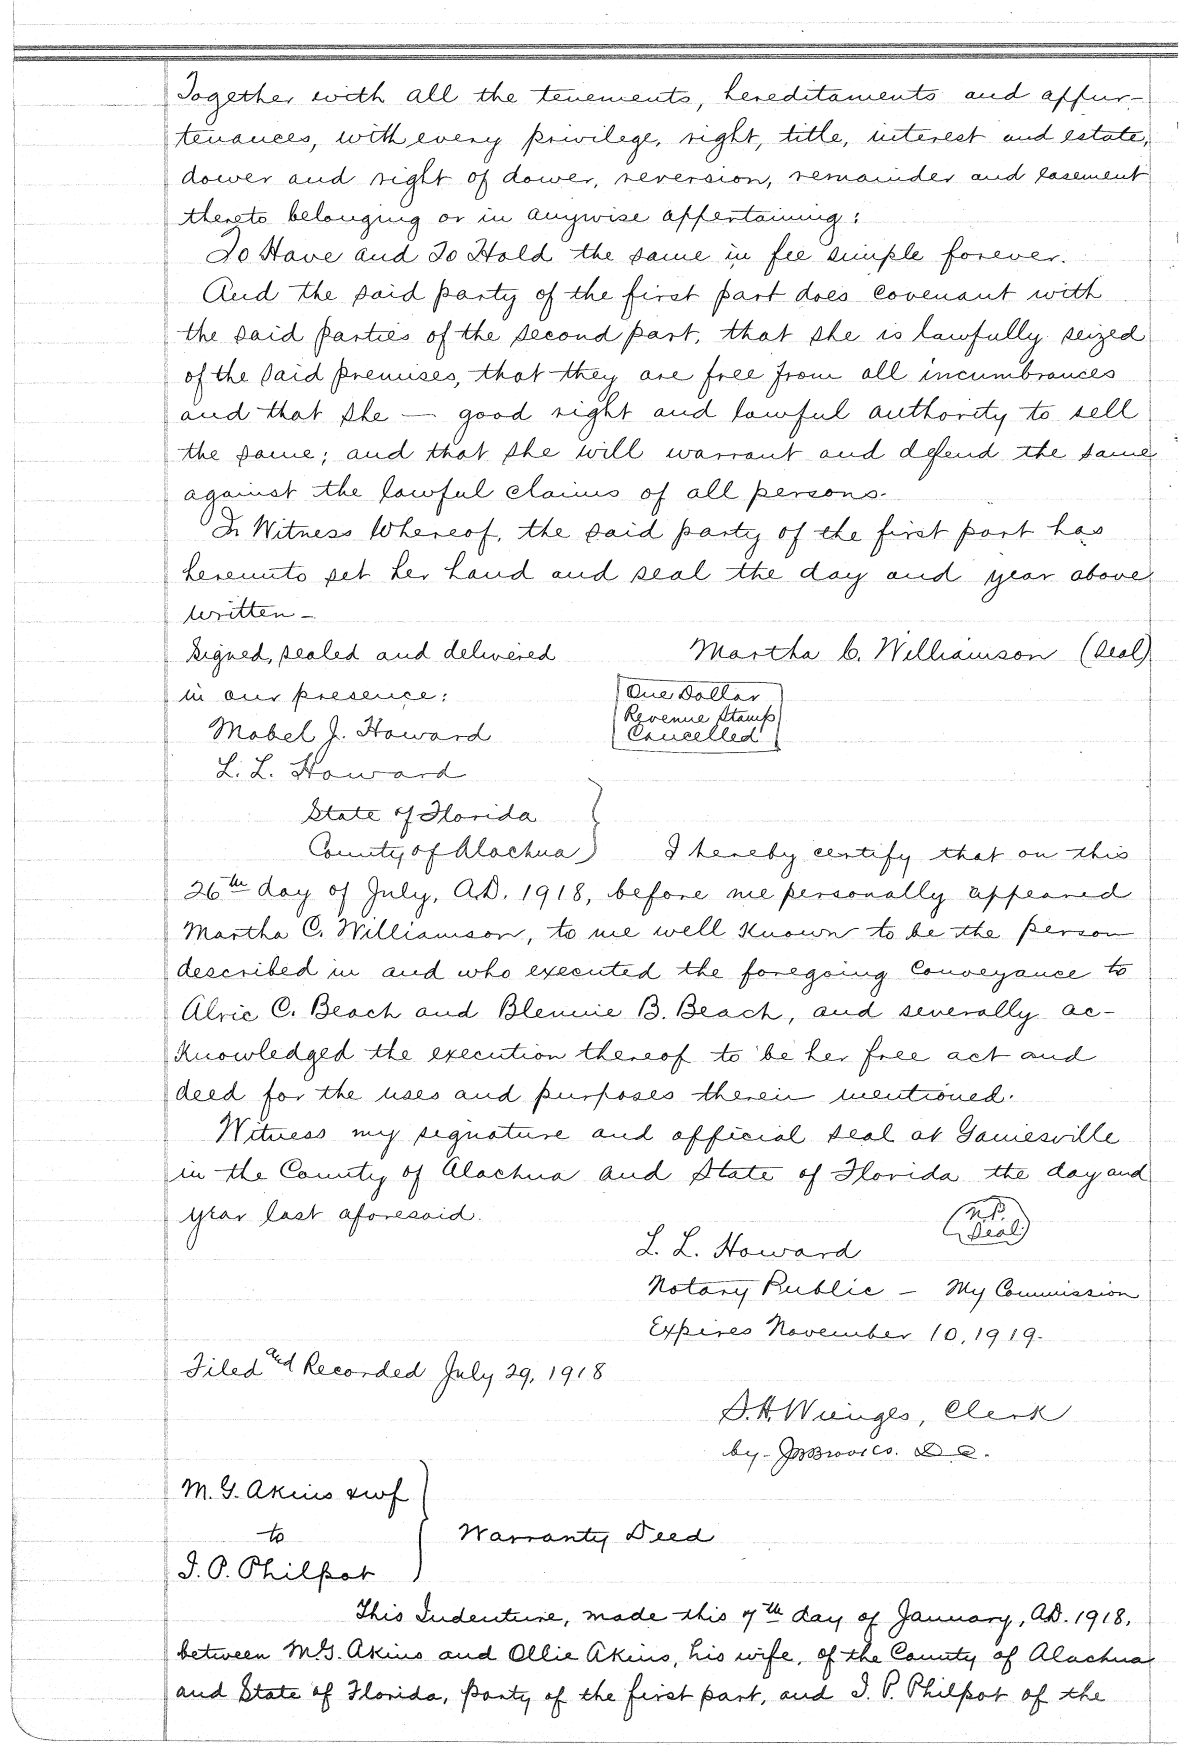 Together with all the tenements, hereditaments and appur-
tenances, with every privilege, right, title, interest and estate,
dower and right of dower, reversion, remainder and easement
thereto belonging or in anywise appertaining:
To Have and To Hold the same in fee simple forever.
And the said party of the first part does covenant with
the said parties of the second part, that she is lawfully seized
of the said premises, that they are free from all incumbrances
and that she — good right and lawful authority to sell
the same; and that she will warrant and defend the same
against the lawful claims of all persons.
In Witness Whereof, the said party of the first part has
hereunto set her hand and seal the day and year above
written -
Signed, sealed and delivered Martha C. Williamson (Seal)
in our presence: One Dollar
Revenue Stamp
Mabel J. Howard Cancelled
L. L. Howard
State of Florida
County of Alachua } I hereby certify that on this
26th day of July, A.D. 1918, before me personally appeared
Martha C. Williamson, to me well known to be the person
described in and who executed the foregoing conveyance to
Alric C. Beach and Blennie B. Beach, and severally ac-
knowledged the execution thereof to be her free act and
deed for the uses and purposes therein mentioned.
Witness my signature and official seal at Gainesville
in the County of Alachua and State of Florida the day and
year last aforesaid. N.P.
Seal
L. L. Howard
Notary Public - My Commission
Expires November 10, 1919.
Filed and Recorded July 29, 1918
S. H. Wienges, Clerk
by - D C.
M. G. Akins & wf
to } Warranty Deed
I. P. Philpot
This Indenture, made this 7th day of January, A.D. 1918,
between M.G. Akins and Ollie Akins, his wife, of the County of Alachua
and State of Florida, party of the first part, and I. P. Philpot of the